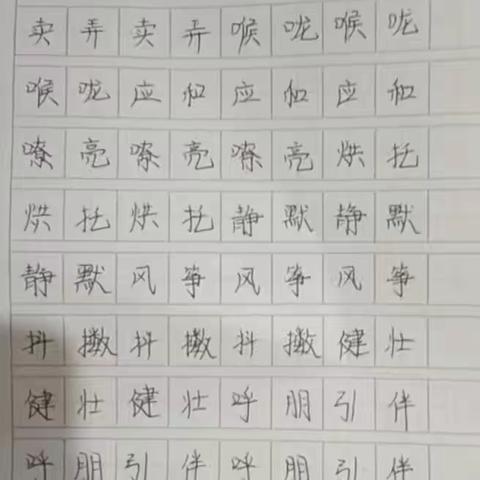 卖弄卖弄喉咙喉咙
喉咙应和应和应和
嘹亮嘹亮嘹亮烘托
烘托烘托静默静默
静默风筝风筝风筝
抖擞抖擞抖擞健壮
健壮健壮呼朋引伴
呼朋引伴呼朋引伴